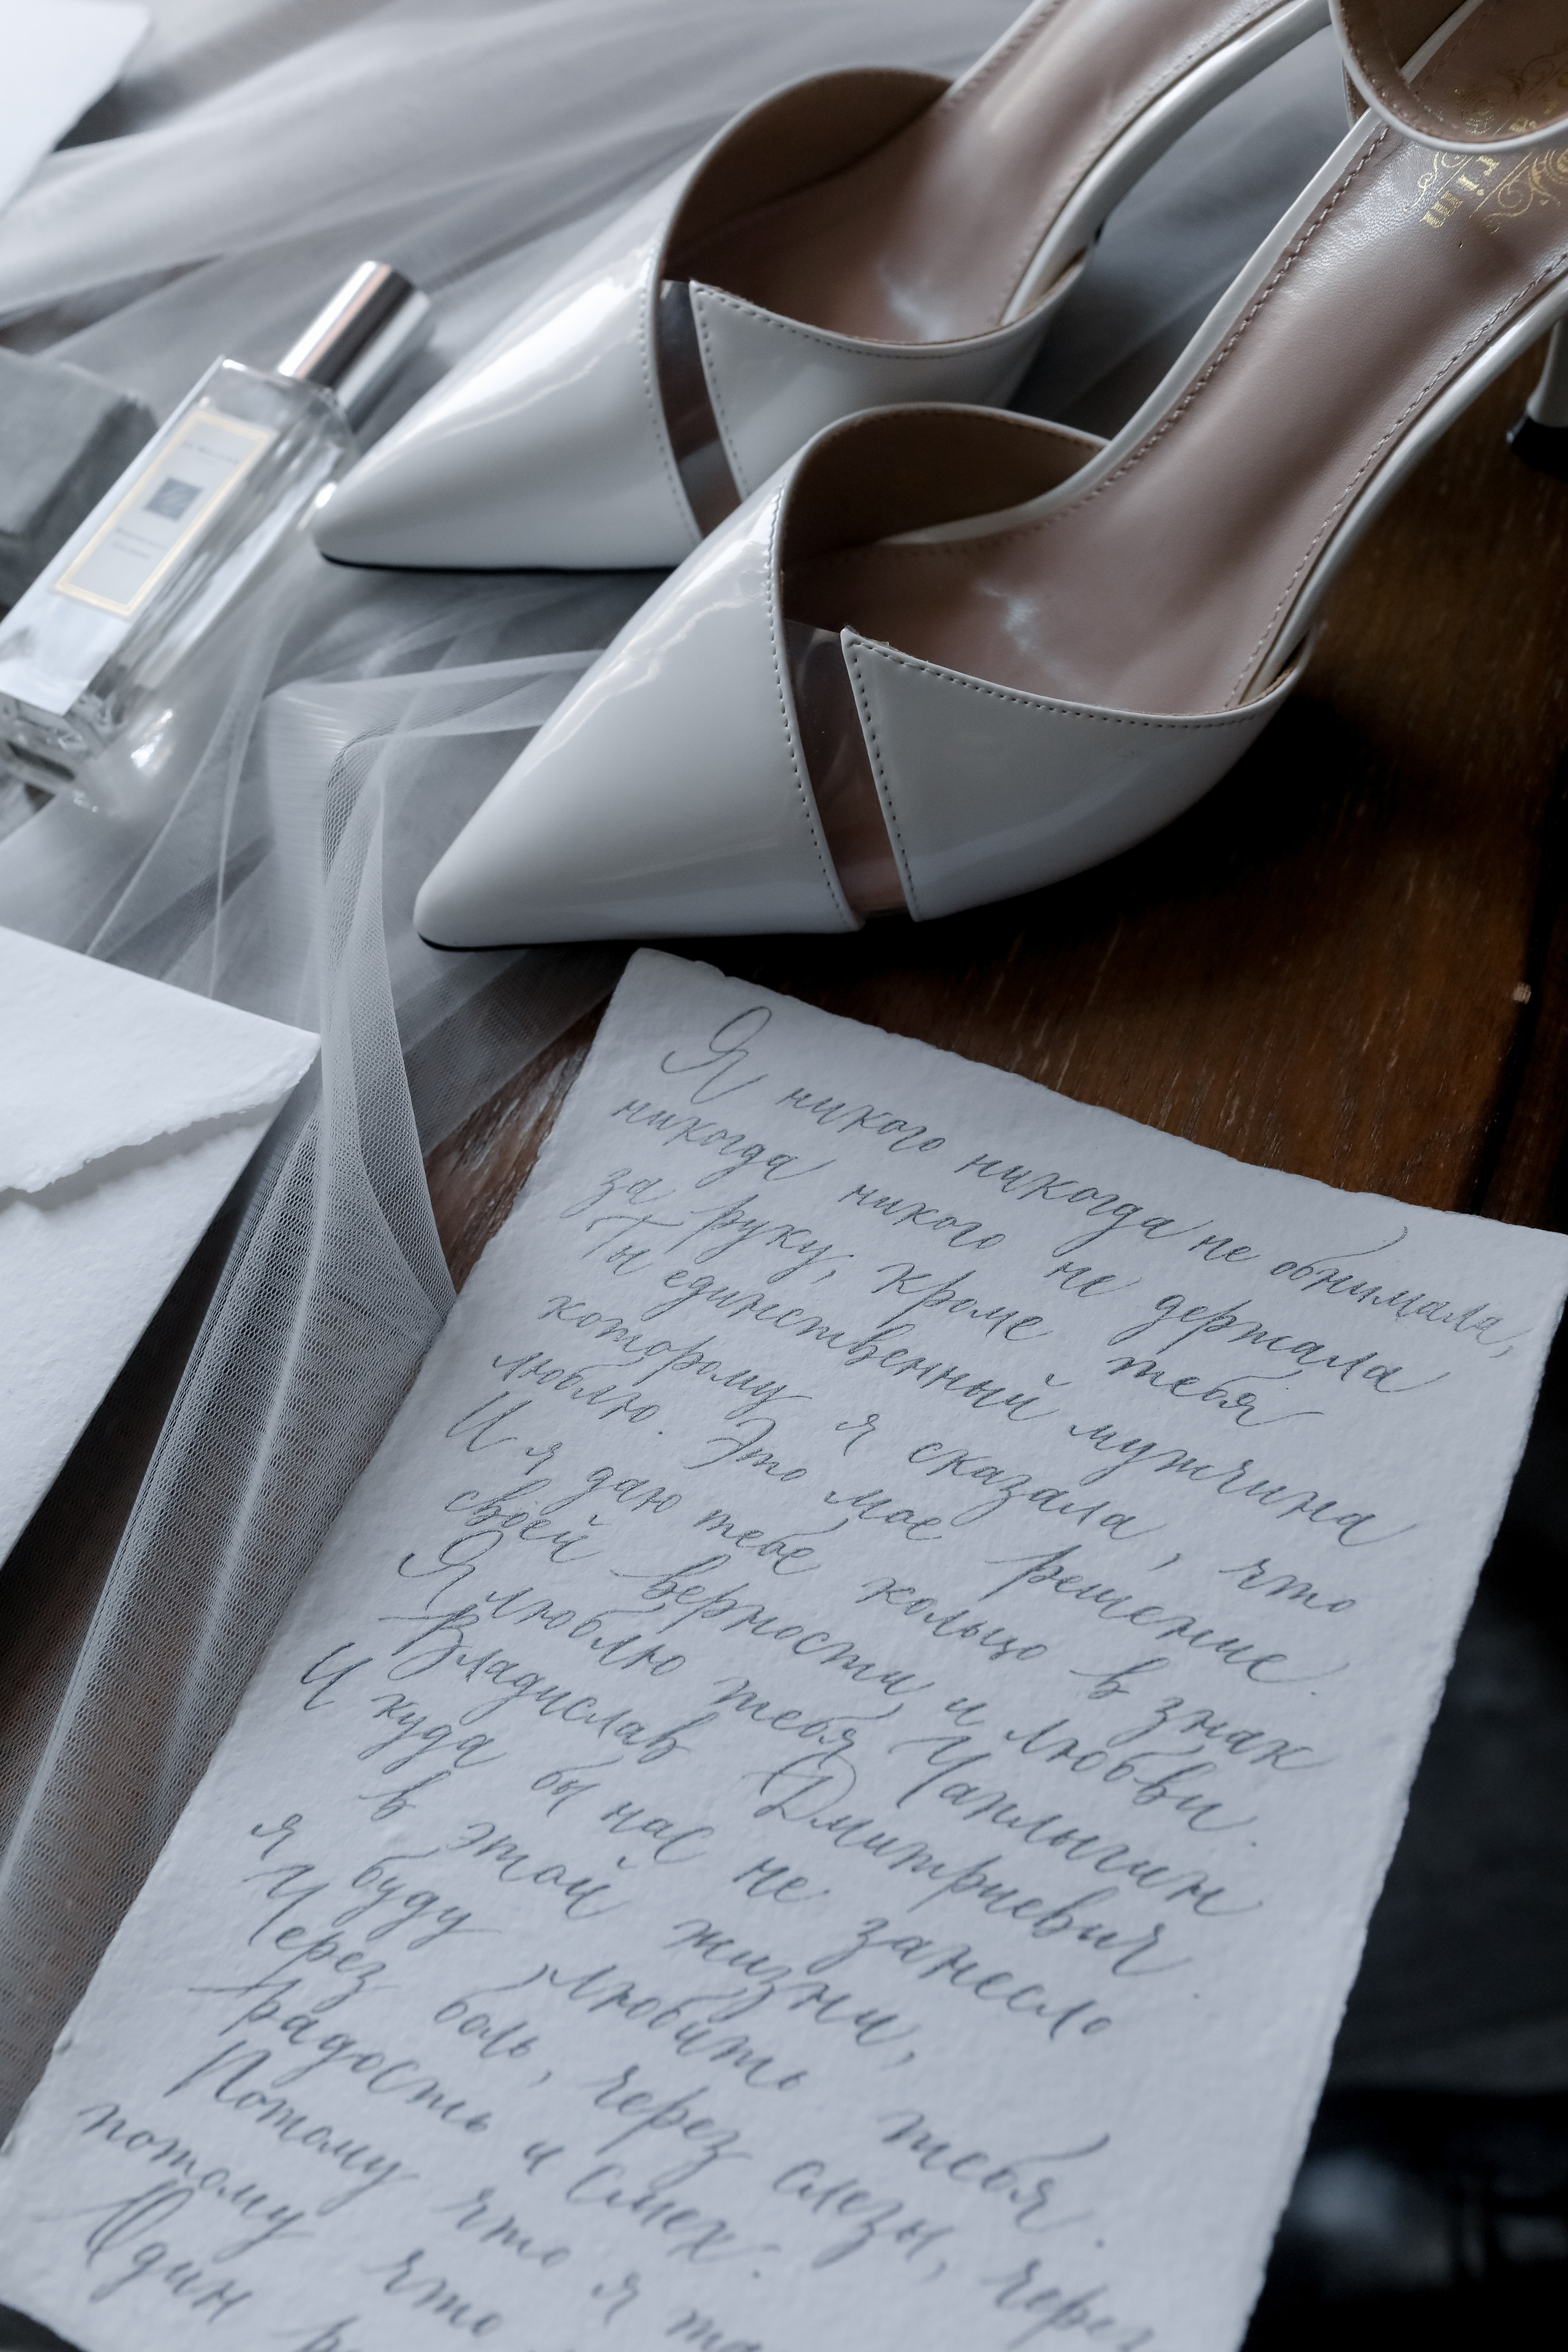 Я никого никогда не обнимала,
никогда никого не держала
за руку, кроме тебя
Ты единственный мужчина
которому я сказала, что
люблю. Это мое решение.
И я даю тебе кольцо в знак
своей верности и любви.
Я люблю тебя Чаплыгин
Владислав Дмитриевич.
И куда бы нас не занесло
в этой жизни,
я буду любить тебя.
Через боль, через слезы, через
радость и смех.
Потому что я
потому что
Один